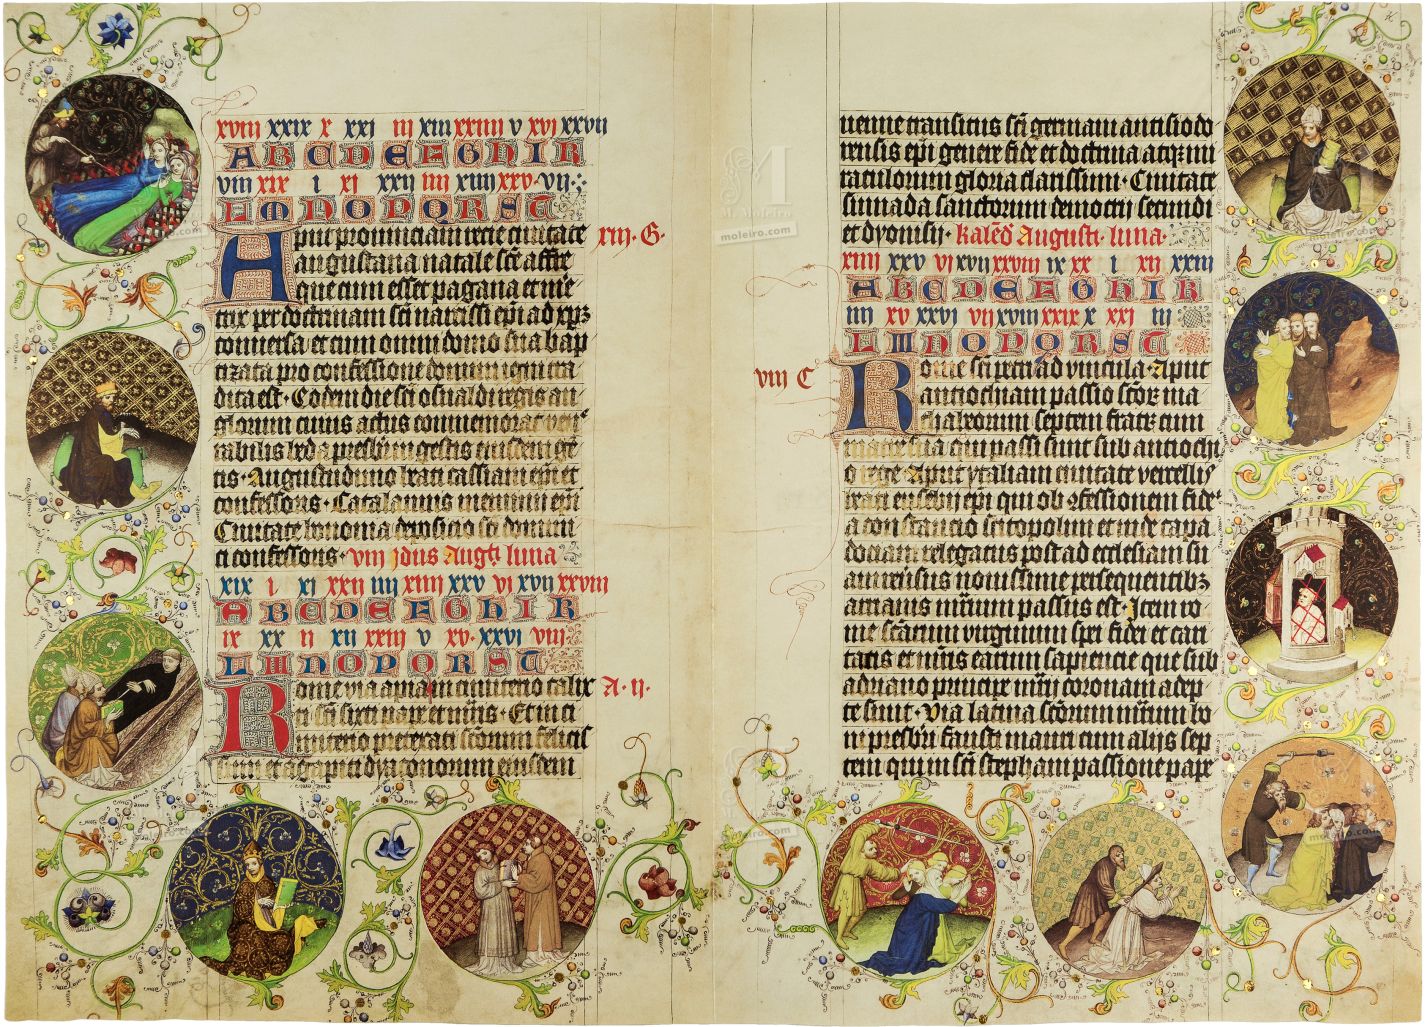 xviii xxix x xxi iii xiii xxiiii v xvi xxvii
A B C D E F G H I K
viii xix i xi xxii iiii xiiii xxv vii
L M N O P Q R S T
Aput provinciam recie civitate xiij. G.
augustana natale scē affre
que cum esset pagana et me
trix per doctrinam sci narcissi epi ad xpz
conversa et cum omni domo sua bap
tizata pro confessione domini igni tra
dita est. Eodem die sci osualdi regis an
glorum cuius actus commemorat vene
rabilis beda presbiter in gestis eiusdem gē
tis. Augustuduno beati cassiani epi et
confessoris. Catalaunis memmii epi
Civitate bononia deposicio sci domini
ci confessoris. viij Idus Augti luna
xix i xi xxii iiii xiiii xxv vi xvii xxviii
A B C D E F G H I K
ix xx ii xii xxiii v xv xxvi viii
L M N O P Q R S T
Rome via apia in cimiterio calix A. ij.
ti sci sixti pape et miris. Et in ci
miterio pretexati scorum felicis
simi et agapiti dyaconorum eiusdem
nenne transitus sci germani autisiodo
rensis epi genere fide et doctrina atqz mi
raculorum gloria clarissimi. Civitate
sinnada sanctorum democrii secundi
et dyonisii. Kaled Augusti. luna.
xiiii xxv vi xvii xxviii ix xx i xii xxiii
A B C D E F G H I K
iiii xv xxvi vii xviii xxix x xxi iii
L M N O P Q R S T
viii C Rome sci petri ad vincula. Aput
antiochiam passio scorum ma
chabeorum septem fratrum cum
matre sua qui passi sunt sub antiocho
o rege. Aput ytaliam civitate vercellis
beati eusebii epi qui ob confessionem fidei
a constancio scitopolim et inde capa
dociam relegatus post ad ecclesiam su
am reversus novissime persequentibz
arrianis mirium passus est. Item ro
me scarum virginum spei fidei et cari
tatis et miris earum sapiencie que sub
adriano principe mirii coronam adep
te sunt. Via latina scorum mirum bo
ni presbiri fausti mauri cum aliis sep
tem qui in sci stephani passione pape
M. Moleiro
moleiro.com